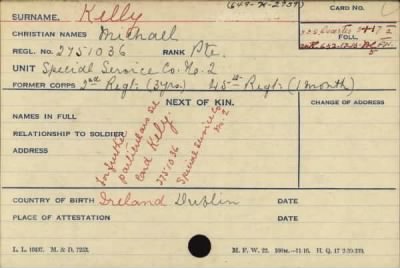 (649-K-2939)
SURNAME. Kelly
CARD NO.
CHRISTIAN NAMES Michael
REGL. NO. 2751036 RANK Pte.
FOLL.
UNIT Special Service Co. No. 2
FORMER CORPS 2nd Regt. (3yrs.) 45th Regt. (1 month)
NEXT OF KIN.
CHANGE OF ADDRESS
NAMES IN FULL
RELATIONSHIP TO SOLDIER
ADDRESS
For further
particulars see
card Kelly.
2751036
Special Service Co
No. 2
COUNTRY OF BIRTH Ireland Dublin
PLACE OF ATTESTATION
L. L. 10497. M. & D. 7253.
M. F. W. 22.
H. Q. 17 2-39-339.